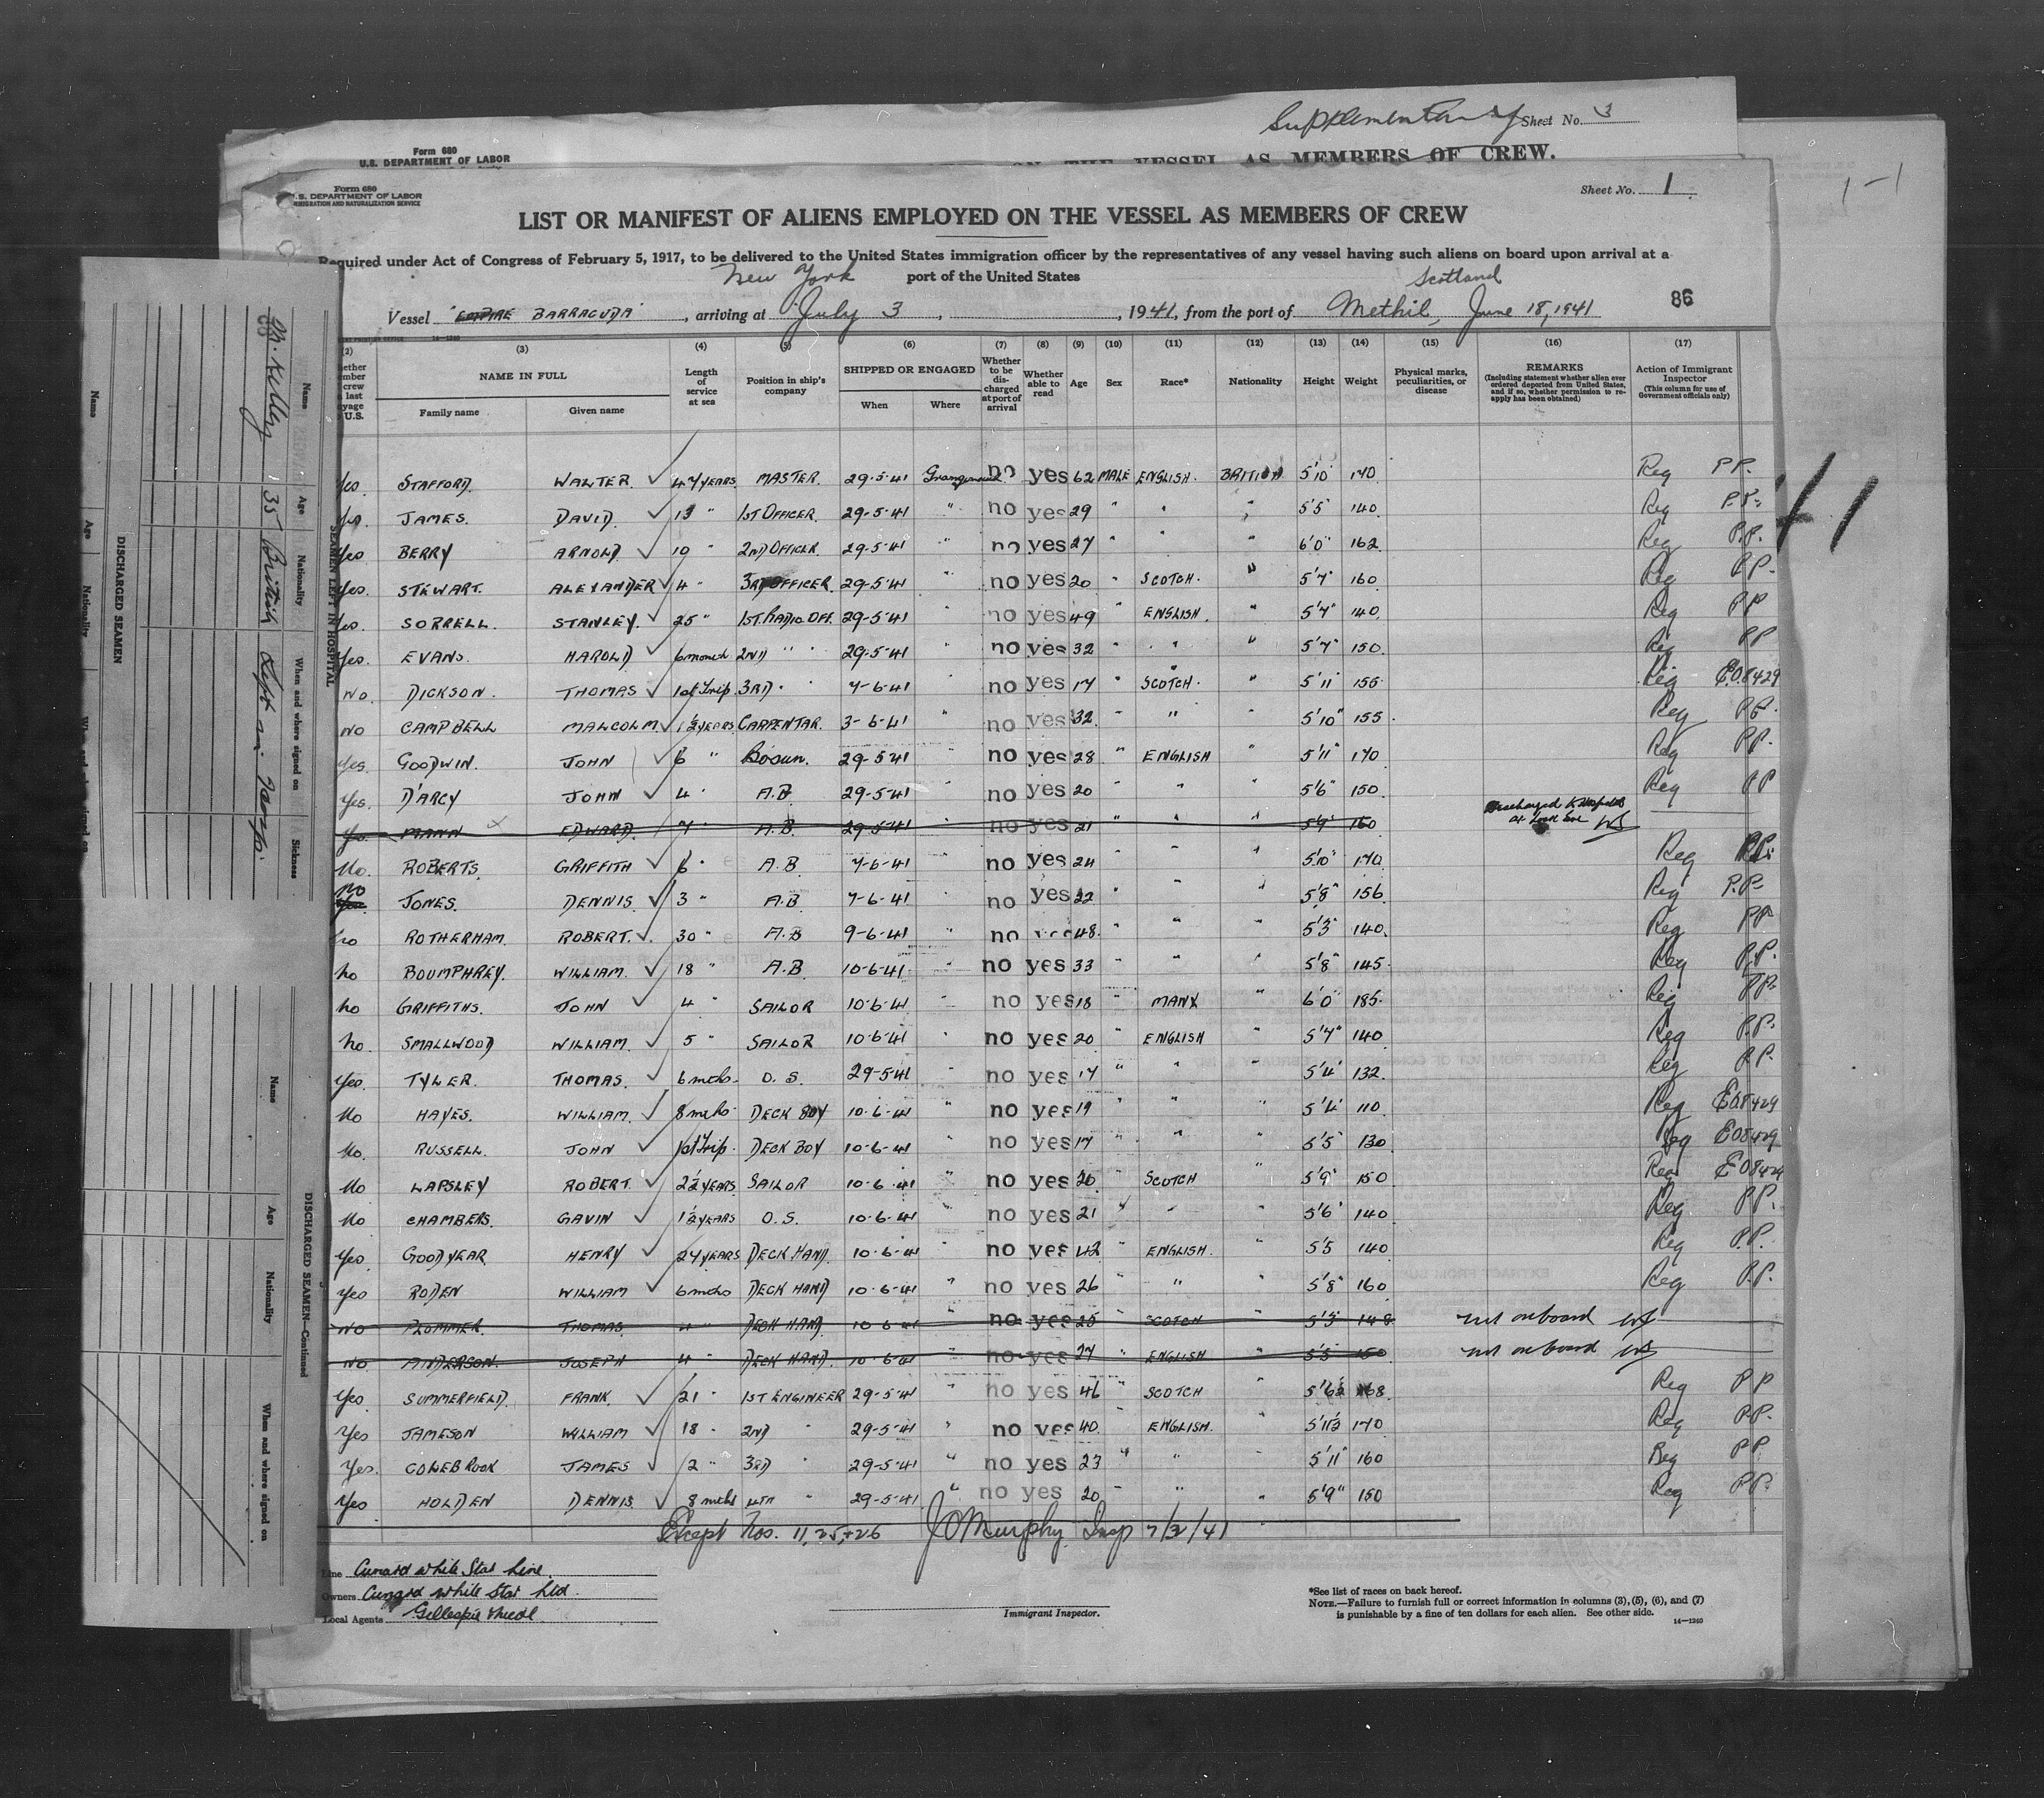 Supplementary Sheet No. 3
Form 680
U.S. DEPARTMENT OF LABOR
ON THE VESSEL AS MEMBERS OF CREW.
Form 680
U.S. DEPARTMENT OF LABOR
IMMIGRATION AND NATURALIZATION SERVICE
Sheet No. 1
LIST OR MANIFEST OF ALIENS EMPLOYED ON THE VESSEL AS MEMBERS OF CREW
Required under Act of Congress of February 5, 1917, to be delivered to the United States immigration officer by the representatives of any vessel having such aliens on board upon arrival at a
New York port of the United States Scotland
86
Vessel "EMPIRE BARRACUDA", arriving at July 3, 1941, from the port of Methil, June 18, 1941
14—1240
(2) (3) (4) (5) (6) (7) (8) (9) (10) (11) (12) (13) (14) (15) (16) (17)
NAME IN FULL
Family name Given name
Length of service at sea
Position in ship's company
SHIPPED OR ENGAGED
When Where
Whether to be discharged at port of arrival
Whether able to read
Age
Sex
Race*
Nationality
Height
Weight
Physical marks, peculiarities, or disease
REMARKS
(Including statement whether alien ever ordered deported from United States, and if so, whether permission to reapply has been obtained)
Action of Immigrant Inspector
(This column for use of Government officials only)
Yes. STAFFORD. WALTER ✓ 47 YEARS MASTER. 29-5-41 Grangemouth no yes 62 MALE ENGLISH. BRITISH 5'10" 170 Reg P.P.
Yes. JAMES. DAVID. ✓ 13 " 1ST OFFICER. 29-5-41 " no yes 29 " " " 5'5" 140. Reg P.P.
Yes BERRY ARNOLD ✓ 10 " 2ND OFFICER. 29-5-41 " no yes 27 " " " 6'0" 162. Reg P.P.
Yes. STEWART. ALEXANDER ✓ 4 " 3RD OFFICER. 29-5-41 " no yes 20 " SCOTCH. " 5'7" 160 Reg P.P.
Yes. SORRELL. STANLEY. ✓ 25 " 1ST. RADIO OFF. 29-5-41 " no yes 49 " ENGLISH. " 5'7" 140. Reg PP
Yes. EVANS. HAROLD ✓ 6 month 2ND " " 29-5-41 no yes 32 " " " 5'7" 150. Reg PP
No. DICKSON. THOMAS ✓ 1st Trip. 3RD " " 7-6-41 no yes 17 " SCOTCH. " 5'11" 155. Reg E.O.8429
No CAMPBELL MALCOLM. ✓ 1½ YEARS CARPENTAR. 3-6-41 " no yes 32. " " " 5'10" 155. Reg P.P.
Yes. GOODWIN. JOHN ✓ 6 " Bosun. 29-5-41 " no yes 28 " ENGLISH " 5'11" 170 Reg P.P.
Yes. D'ARCY JOHN ✓ 4 " A.B. 29-5-41 " no yes 20 " " " 5'6" 150. Reg P.P
Yes. MANN EDWARD. 7 " A.B. 29-5-41 " no yes 21 " " " 5'9" 160 Discharged to Hospital at Loch Ewe
No. ROBERTS. GRIFFITH ✓ 6 " A.B 7-6-41 no yes 24 " " " 5'10" 170. Reg P.P.
No JONES. DENNIS. ✓ 3 " A.B 7-6-41 " no yes 22 " " " 5'8" 156. Reg P.P.
No ROTHERHAM. ROBERT. ✓ 30 " A.B 9-6-41 " no yes 48. " " " 5'3" 140. Reg PP
No BOUMPHREY. WILLIAM. ✓ 18 " A.B. 10-6-41 " no yes 33 " " " 5'8" 145. Reg P.P.
No GRIFFITHS. JOHN ✓ 4 " SAILOR 10-6-41 " no yes 18 " MANX " 6'0" 185. Reg P.P.
No. SMALLWOOD WILLIAM. ✓ 5 " SAILOR 10-6-41 " no yes 20 " ENGLISH " 5'7" 140 Reg P.P.
Yes. TYLER. THOMAS. ✓ 6 mths. O.S. 29-5-41 " no yes 17 " " 5'4" 132. Reg P.P.
No HAYES. WILLIAM. ✓ 8 mths. DECK BOY 10-6-41 " no yes 19 " " " 5'4" 110 Reg E.O.8429
No. RUSSELL. JOHN ✓ 1st Trip. DECK BOY 10-6-41 no yes 17 " " " 5'5" 130 Reg E.O8429
No LAPSLEY ROBERT ✓ 2½ YEARS. SAILOR 10-6-41 " no yes 20. " SCOTCH " 5'9" 150 Reg E.O8429
No CHAMBERS. GAVIN ✓ 1½ YEARS O.S. 10-6-41 " no yes 21 " " 5'6" 140 Reg P.P.
Yes GOODYEAR. HENRY ✓ 27 YEARS DECK HAND. 10-6-41 " no yes 42 " ENGLISH. " 5'5 140 Reg P.P.
Yes RODEN WILLIAM ✓ 6 mths DECK HAND 10-6-41 " no yes 26 " " " 5'8" 160 Reg P.P.
No PLUMMER. THOMAS. 4 " DECK HAND. 10-6-41 " no yes 25 " SCOTCH " 5'3" 148 not onboard
No ANDERSON. JOSEPH 4 " DECK HAND. 10-6-41 " no yes 27 " ENGLISH " 5'5" 150 not onboard
Yes SUMMERFIELD. FRANK. ✓ 21 " 1ST ENGINEER 29-5-41 " no yes 46 " SCOTCH " 5'6½ 168. Reg P.P
Yes JAMESON WILLIAM ✓ 18 " 2ND " 29-5-41 " no yes 40. ENGLISH. " 5'11½ 170 Reg P.P.
Yes. COLEBROOK JAMES ✓ 2 " 3RD " 29-5-41 " no yes 23 " " " 5'11" 160 Reg P.P.
Yes HOLDEN DENNIS. ✓ 8 mths 4TH " 29-5-41. " no yes 20 " " " 5'9" 150 Reg P.P.
Except Nos. 11, 25, +26 J O Murphy Insp 7/3/41
Line Cunard White Star Line.
Owners Cunard White Star Ltd.
Local Agents
Immigrant Inspector.
*See list of races on back hereof.
NOTE.—Failure to furnish full or correct information in columns (3), (5), (6), and (7)
is punishable by a fine of ten dollars for each alien. See other side.
14—1240
SEAMEN LEFT IN HOSPITAL
Name Age Nationality When and where signed on Sickness
M. Kelly 35 British
DISCHARGED SEAMEN
Name Age Nationality
DISCHARGED SEAMEN—Continued
Name Age Nationality When and where signed on
1-1
41